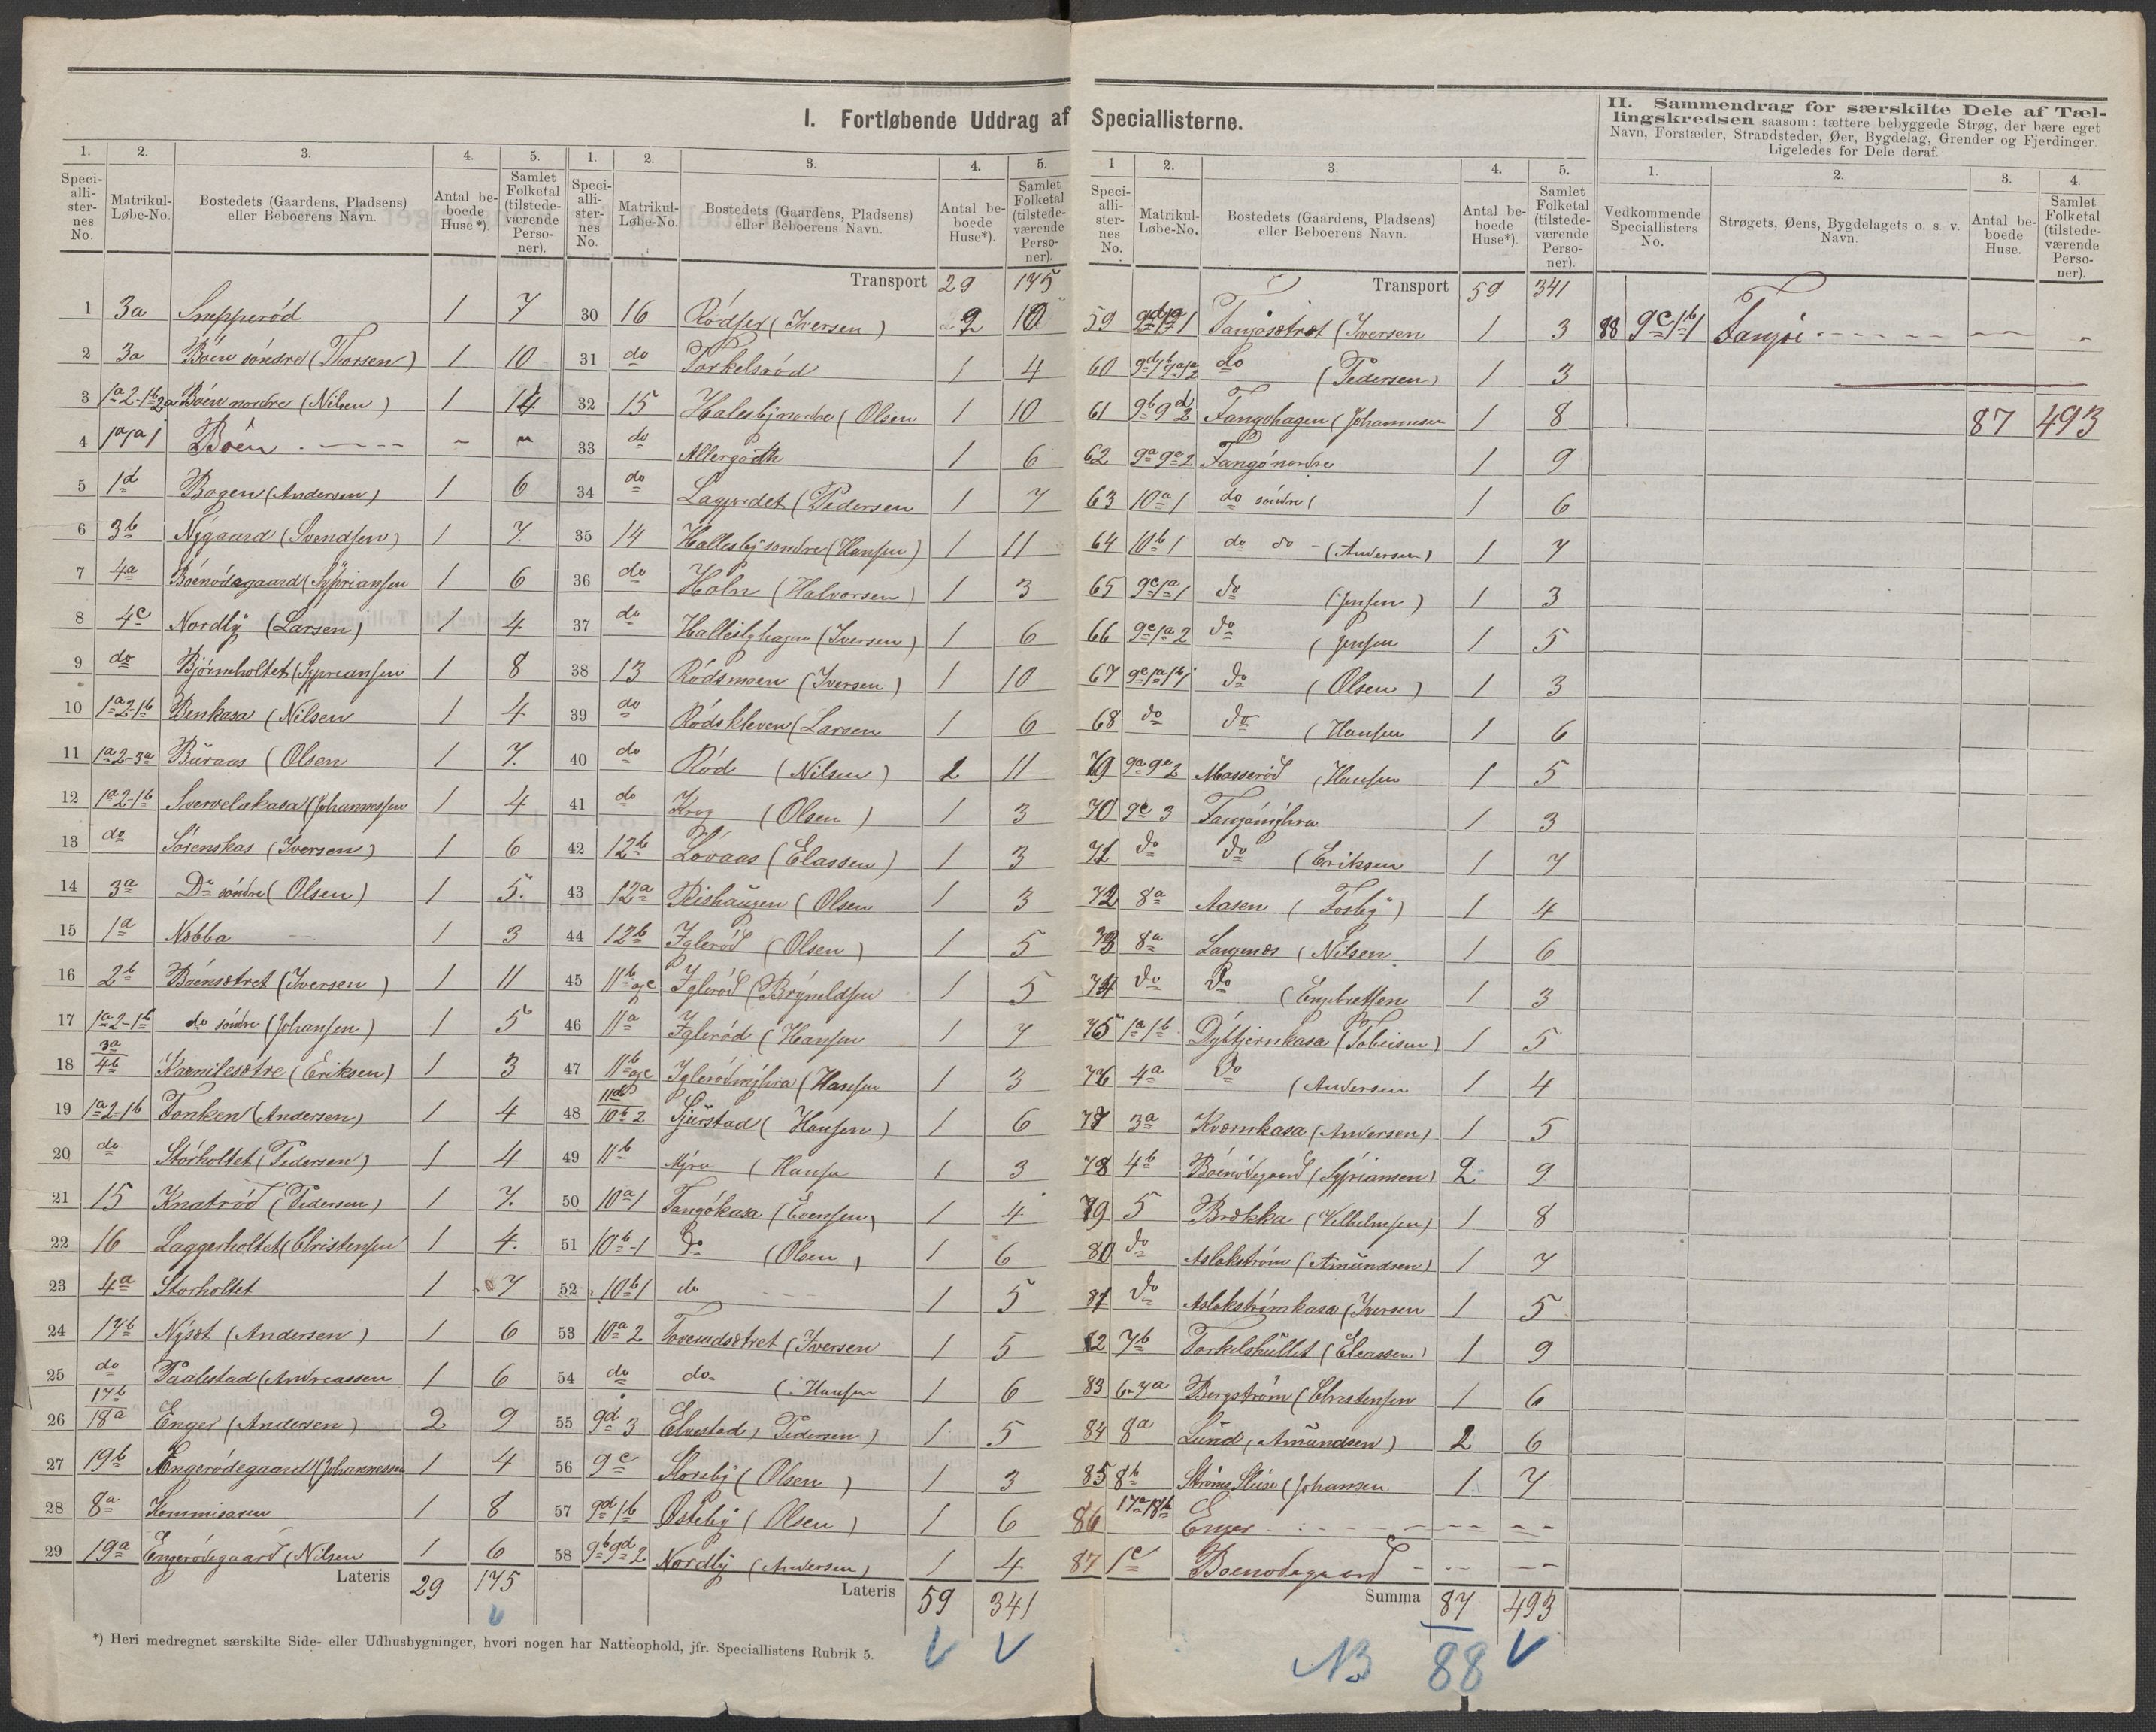 I. Fortløbende Uddrag af Speciallisterne.
II. Sammendrag for særskilte Dele af Tællingskredsen saasom: tættere bebyggede Strøg, der bære eget
Navn, Forstæder, Strandsteder, Øer, Bygdelag, Grender og Fjerdinger.
Ligeledes for Dele deraf.
1. 2. 3. 4. 5.
Speciallisternes No. Matrikul-Løbe-No. Bostedets (Gaardens, Pladsens) eller Beboerens Navn. Antal beboede Huse*). Samlet Folketal (tilstedeværende Personer).
1 3a Smpperød 1 7
2 3a Böen söndre (Thorsen) 1 10
3 1a2-1b2a Böen nordre (Nilsen) 1 14
4 1a1a1 Böen - -
5 1d Bogen (Andersen) 1 6
6 3b Nygaard (Svendsen) 1 7
7 4a Böenödegaard (Sypriansen 1 6
8 4c Nordby (Larsen) 1 4
9 do Bjørnholtet (Sypriansen 1 8
10 1a2-1b Benkasa (Nilsen 1 4
11 1a2-3a Buraas (Olsen 1 7
12 1a2-1b Svervelakasa (Johannessen 1 4
13 do Söienskas (Iversen) 1 6
14 3a Do söndre (Olsen) 1 5
15 1a Nabba 1 3
16 2b Böensætret (Iversen) 1 11
17 1a2-1b do söndre (Johansen) 1 5
18 3a 4b Karnilesætre (Eriksen) 1 3
19 1a2-1b Fonken (Andersen) 1 4
20 do Storholtet (Pedersen) 1 4
21 15 Knatröd (Pedersen) 1 7
22 16 Laggerholtet (Christensen 1 4
23 4a Storholtet 1 7
24 17b Nysæt (Andersen) 1 6
25 do Paalestad (Andreassen 1 6
26 17b 18a Enger (Andersen) 2 9
27 19b Engerödegaard (Johannessen 1 4
28 8a Kommisaren 1 8
29 19a Engerödegaard (Nilsen 1 6
Lateris 29 175
1. 2. 3. 4. 5.
Speciallisternes No. Matrikul-Løbe-No. Bostedets (Gaardens, Pladsens) eller Beboerens Navn. Antal beboede Huse*). Samlet Folketal (tilstedeværende Personer).
Transport 29 175
30 16 Rödser (Iversen) 2 10
31 do Torkelsröd 1 4
32 15 Halesby nordre (Olsen 1 10
33 do Allergodt 1 6
34 do Lagjordet (Pedersen 1 7
35 14 Hallesby söndre (Hansen) 1 11
36 do Holn (Halvorsen) 1 3
37 do Hallesbyhagen (Iversen) 1 6
38 13 Rödsmoen (Iversen) 1 10
39 do Rödskleven (Larsen 1 6
40 do Röd (Nilsen) 2 11
41 do Krog (Olsen) 1 3
42 12b Lovaas (Elassen) 1 3
43 12a Rishaugen (Olsen 1 3
44 12b Igleröd (Olsen) 1 5
45 11b og c Igleröd (Brynildsen 1 5
46 11a Igleröd (Hansen 1 7
47 11b og c Iglerödmyhra (Hansen 1 3
48 10b2 Sjurstad (Hansen) 1 6
49 11b Myra (Hansen 1 3
50 10a1 Tangökasa (Evensen) 1 4
51 10b-1 Do (Olsen) 1 6
52 10b1 do 1 5
53 10a2 Toverudsætret (Iversen 1 5
54 do do (Hansen 1 6
55 9d3 Elvestad (Pedersen) 1 5
56 9c Moseby (Olsen) 1 3
57 9d1b Østeby (Olsen) 1 6
58 9b9d2 Nordby (Andersen) 1 4
Lateris 59 341
*) Heri medregnet særskilte Side- eller Udhusbygninger, hvori nogen har Natteophold, jfr. Speciallistens Rubrik 5.
1 2. 3. 4. 5.
Speciallisternes No. Matrikul-Løbe-No. Bostedets (Gaardens, Pladsens) eller Beboerens Navn. Antal beboede Huse*). Samlet Folketal (tilstedeværende Personer).
Transport 59 341
59 Tangösætret (Iversen 1 3
60 do (Pedersen) 1 3
61 9b9d2 Tangohagen (Johannesen 1 8
62 9a9e2 Tangö nordre 1 9
63 10a1 do söndre ( 1 6
64 10b1 do do - (Andersen) 1 7
65 9e1a1 do (Jensen) 1 3
66 9e1a2 do (Jensen 1 5
67 9e1a1b1 do (Olsen) 1 3
68 do do (Hansen 1 6
69 9a9e2 Masseröd (Hansen 1 5
70 9e3 Tangömyhra 1 3
71 do do (Eriksen 1 7
72 8a Aasen (Fosby) 1 4
73 8a Langenes (Nilsen 1 6
74 do Do (Engebretsen 1 3
75 1a1b Dybtjernkasa (Tobiesen) 1 5
76 4a Do (Andersen 1 4
77 3a Kvernkasa (Andersen) 1 5
78 4b Böenödegaard (Sypriansen) 2 9
79 5 Brekka (Vilhelmsen) 1 8
80 do Aslakström (Amundsen) 1 7
81 do Aslakströmkasa (Iversen 1 5
82 7b Torkelshullet (Eleassen) 1 9
83 6-7a Bergström (Christensen 1 6
84 8a Lund (Amundsen) 2 6
85 8b Ströms Sluse (Johansen 1 7
86 17a18b Enger - -
87 1c Boenodegaard - -
Summa 87 493
NB 88
1. 2. 3. 4.
Vedkommende Speciallisters No. Strøgets, Øens, Bygdelagets o. s. v. Navn. Antal beboede Huse. Samlet Folketal (tilstedeværende Personer).
88 9c1b1 Tangöe - -
87 493